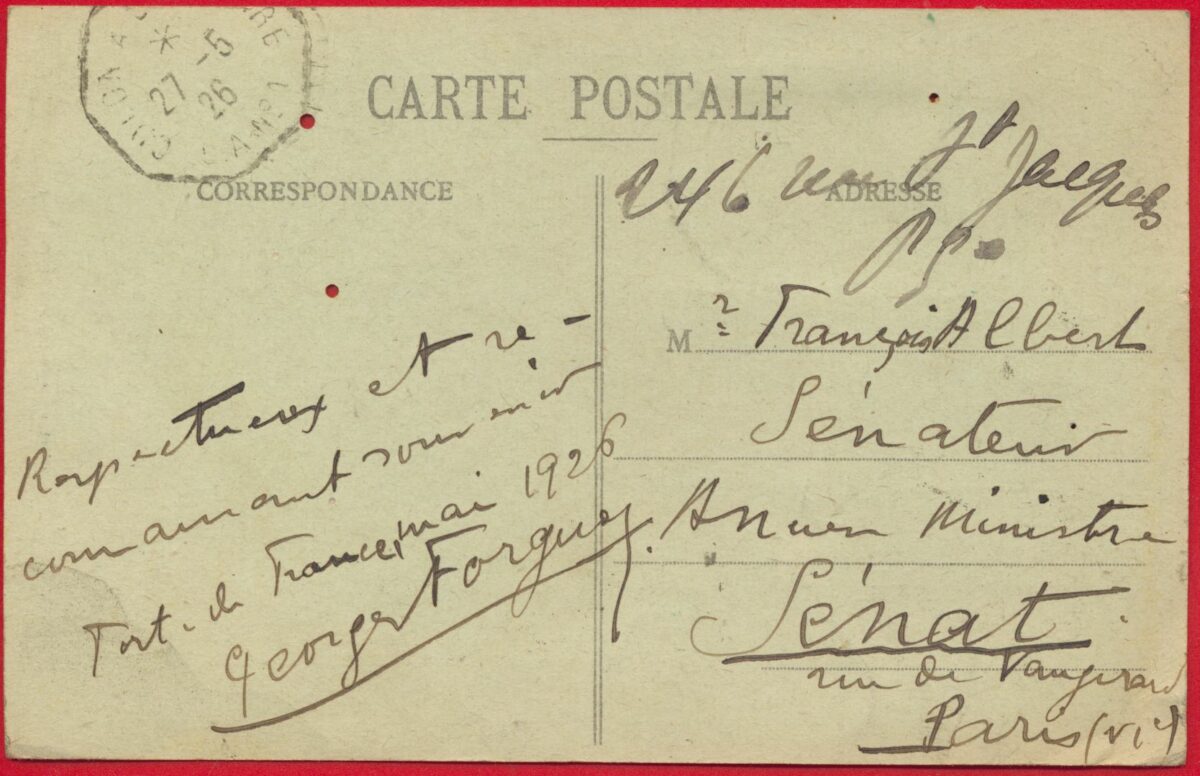 27 -5
26
CARTE POSTALE
CORRESPONDANCE
ADRESSE
246 rue St Jacques
Respectueux et re-
connaissant souvenir
Fort-de France, mai 1926
Georges
Mr François Albert
Sénateur
Ancien Ministre
Sénat
rue de Vaugirard
Paris (VIe)